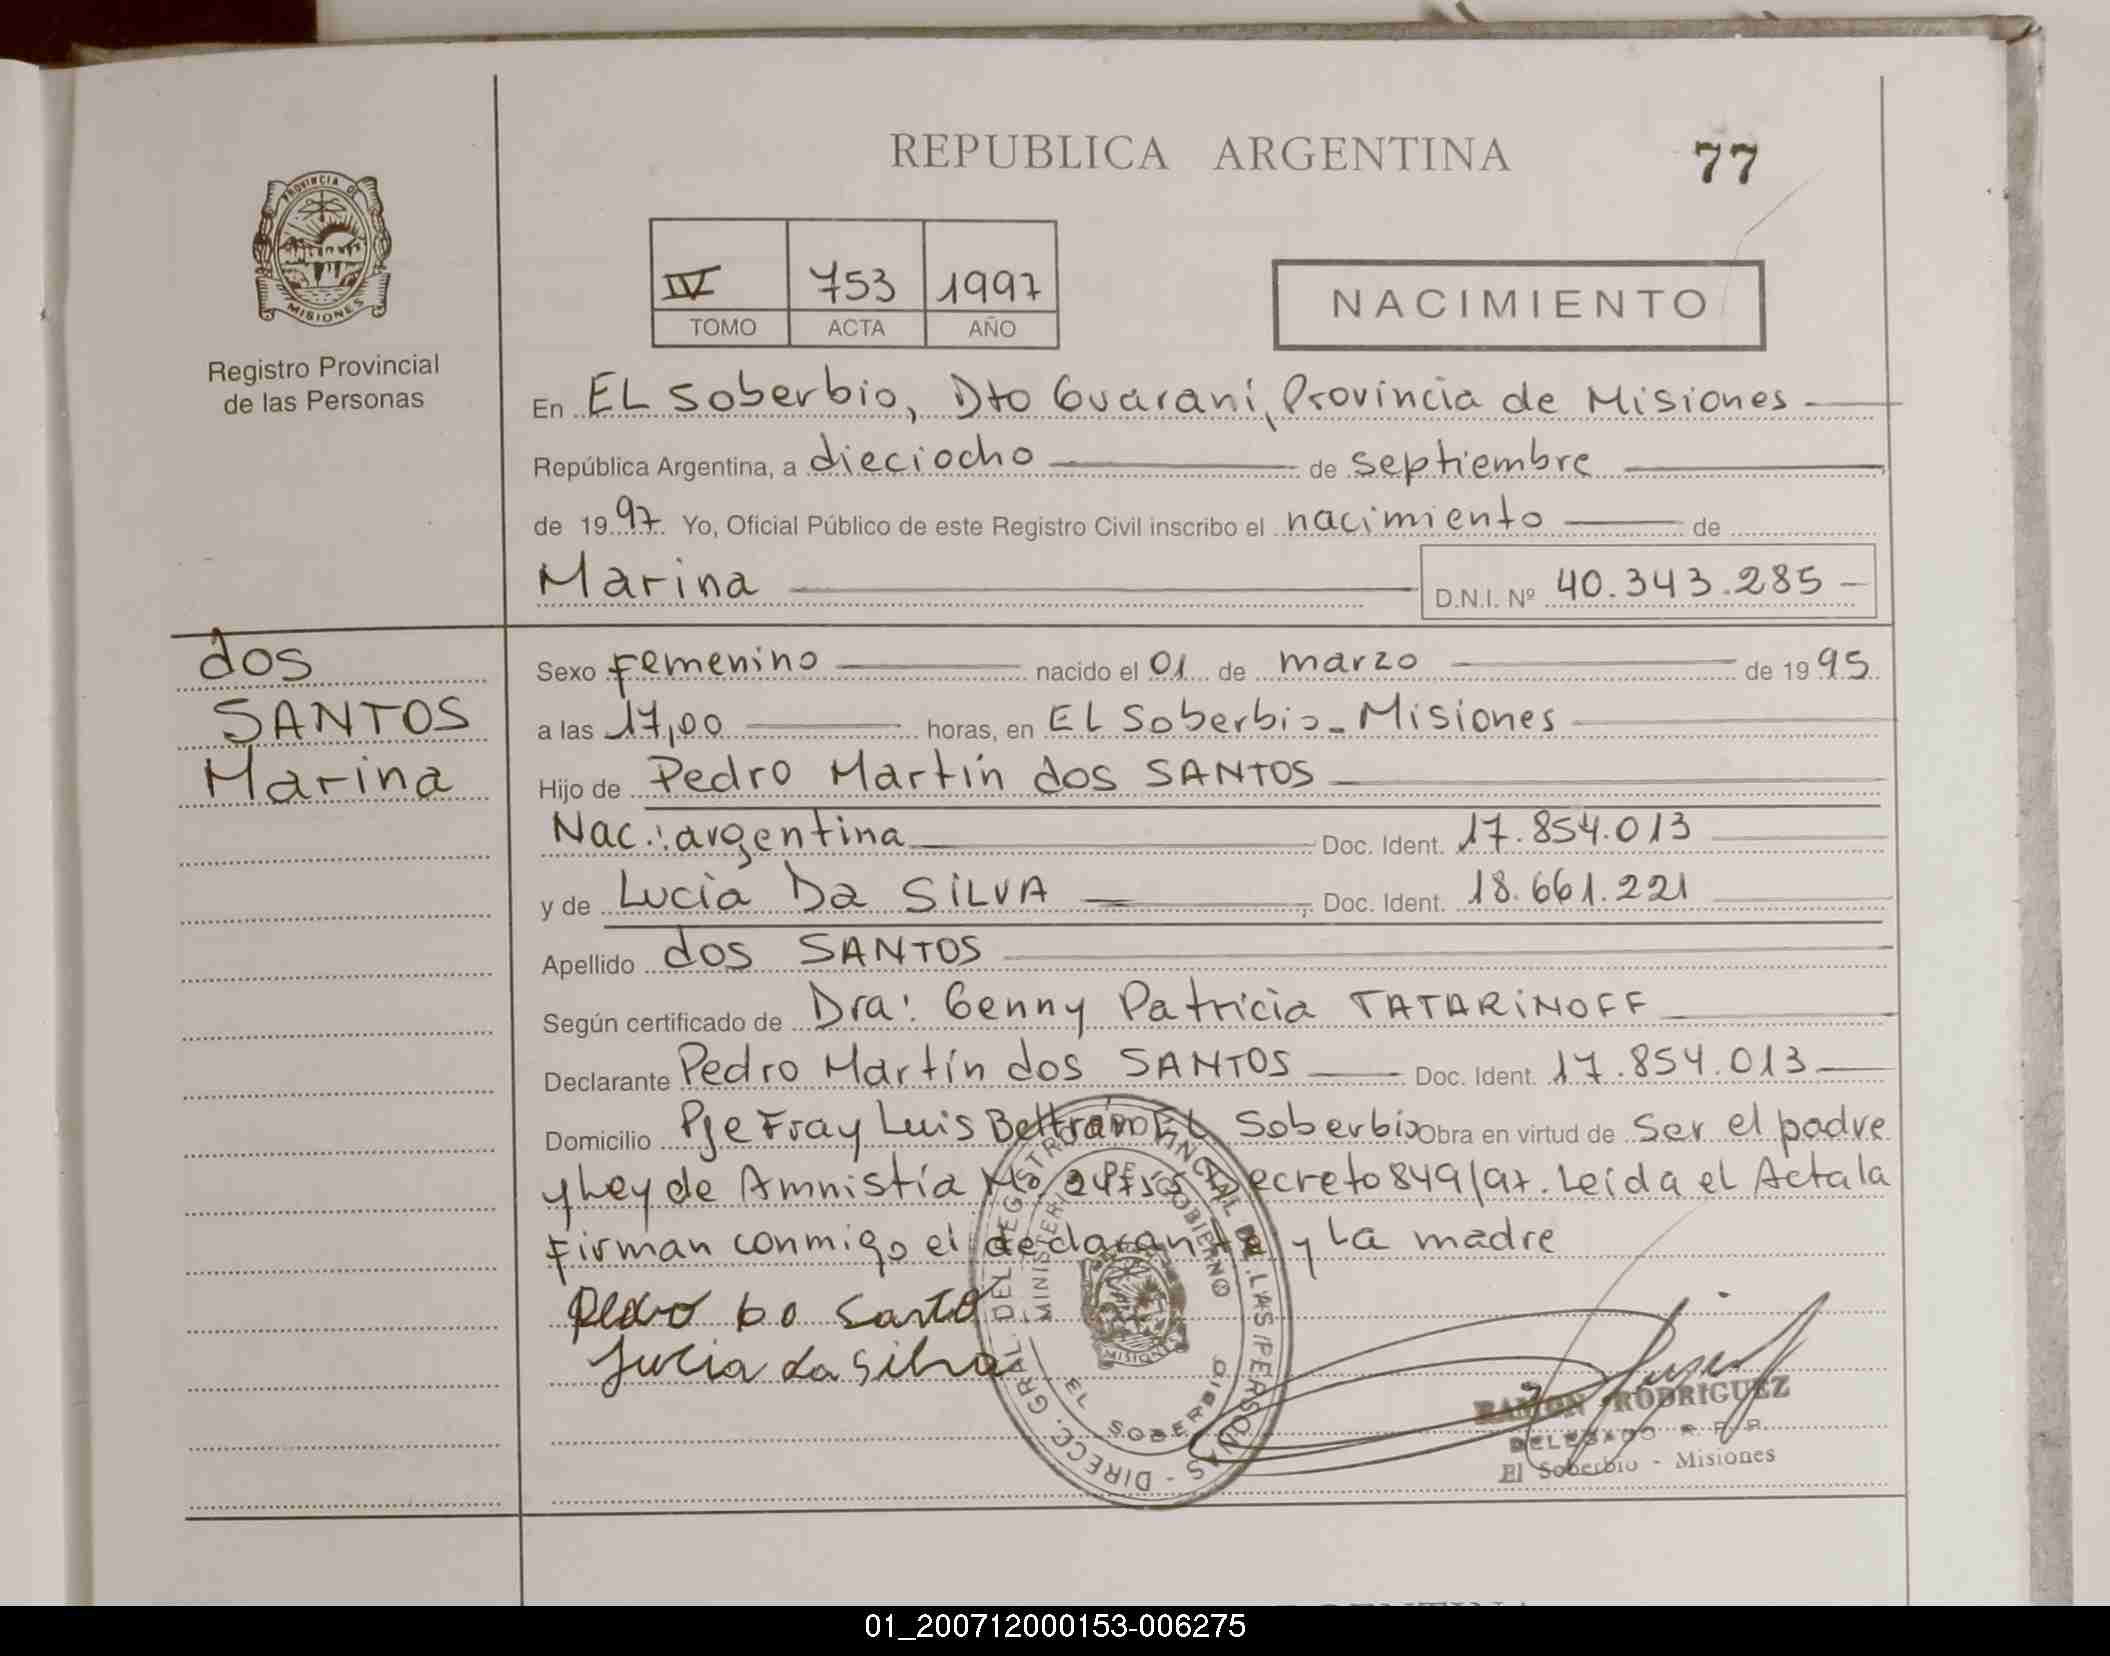 REPUBLICA ARGENTINA
77
PROVINCIA DE
MISIONES
Registro Provincial
de las Personas
IV 753 1997
TOMO ACTA AÑO
NACIMIENTO
En EL Soberbio, Dto Guaraní, Provincia de Misiones
República Argentina, a dieciocho de septiembre
de 1997. Yo, Oficial Público de este Registro Civil inscribo el nacimiento de
Marina D.N.I. Nº 40.343.285
dos
SANTOS
Marina
Sexo Femenino nacido el 01 de marzo de 1995
a las 17,00 horas, en EL Soberbio - Misiones
Hijo de Pedro Martín dos SANTOS
Nac.: argentina Doc. Ident. 17.854.013
y de Lucia Da SILVA Doc. Ident. 18.661.221
Apellido dos SANTOS
Según certificado de Dra: Genny Patricia TATARINOFF
Declarante Pedro Martín dos SANTOS Doc. Ident. 17.854.013
Domicilio Pje Fray Luis Beltrán EL Soberbio Obra en virtud de Ser el padre
y Ley de Amnistía Decreto 849/97. Leída el Acta la
Firman conmigo el declarante y La madre
Pedro do Santo
Lucia da Silva
DIRECC. GRAL. DEL REGISTRO PROVINCIAL DE LAS PERSONAS
MINISTERIO GOBIERNO
MISIONES
EL SOBERBIO
RAMON RODRIGUEZ
DELEGADO R. P. P.
El Soberbio - Misiones
01_200712000153-006275